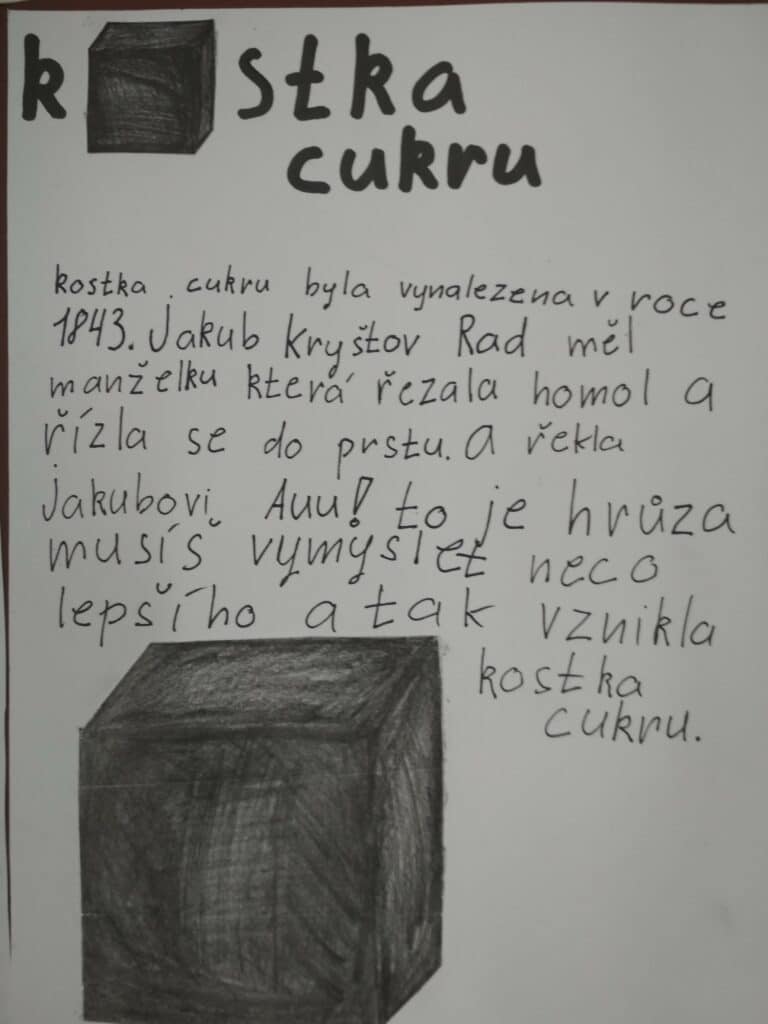 kostka
cukru
kostka cukru byla vynalezena v roce
1843. Jakub Kryštov Rad měl
manželku která řezala homol a
řízla se do prstu. A řekla
Jakubovi Auu! to je hrůza
musíš vymyslet neco
lepšího a tak vznikla
kostka
cukru.